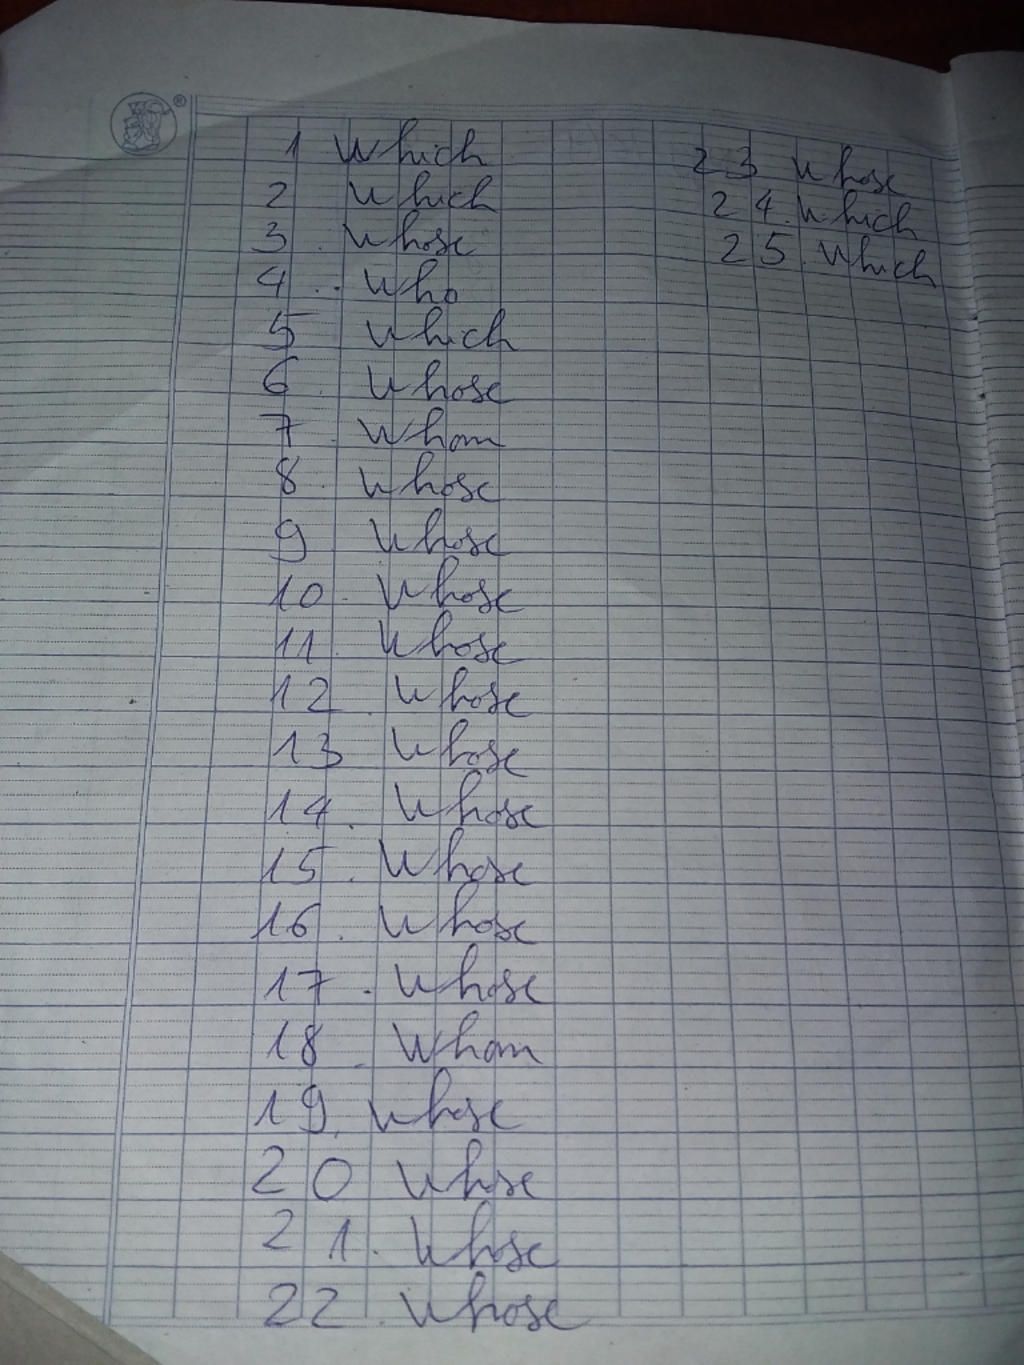 1 Which
2 Which
3. Whose
4.. Who
5 Which
6. Whose
7. Whom
8. Whose
9 Whose
10. Whose
11. Whose
12. Whose
13 Whose
14. Whose
15. Whose
16. Whose
17. Whose
18. Whom
19. Whose
20 Whose
21. Whose
22. Whose
23 Whose
24. Which
25. Which